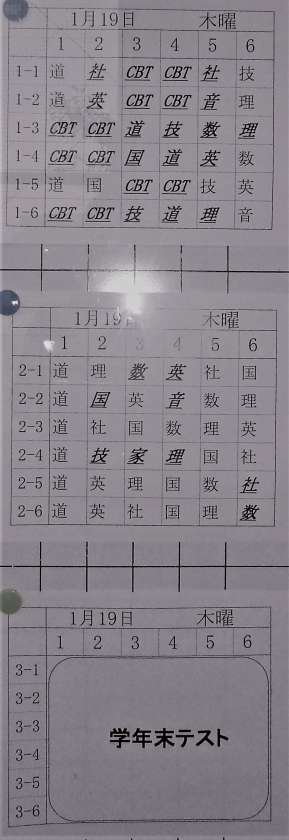 1月19日 木曜
1 2 3 4 5 6
1-1 道 社 CBT CBT 社 技
1-2 道 英 CBT CBT 音 理
1-3 CBT CBT 道 技 数 理
1-4 CBT CBT 国 道 英 数
1-5 道 国 CBT CBT 技 英
1-6 CBT CBT 技 道 理 音
1月19日 木曜
1 2 3 4 5 6
2-1 道 理 数 英 社 国
2-2 道 国 英 音 数 理
2-3 道 社 国 数 理 英
2-4 道 技 家 理 国 社
2-5 道 英 理 国 数 社
2-6 道 英 社 国 理 数
1月19日 木曜
1 2 3 4 5 6
3-1
3-2
3-3
学年末テスト
3-4
3-5
3-6